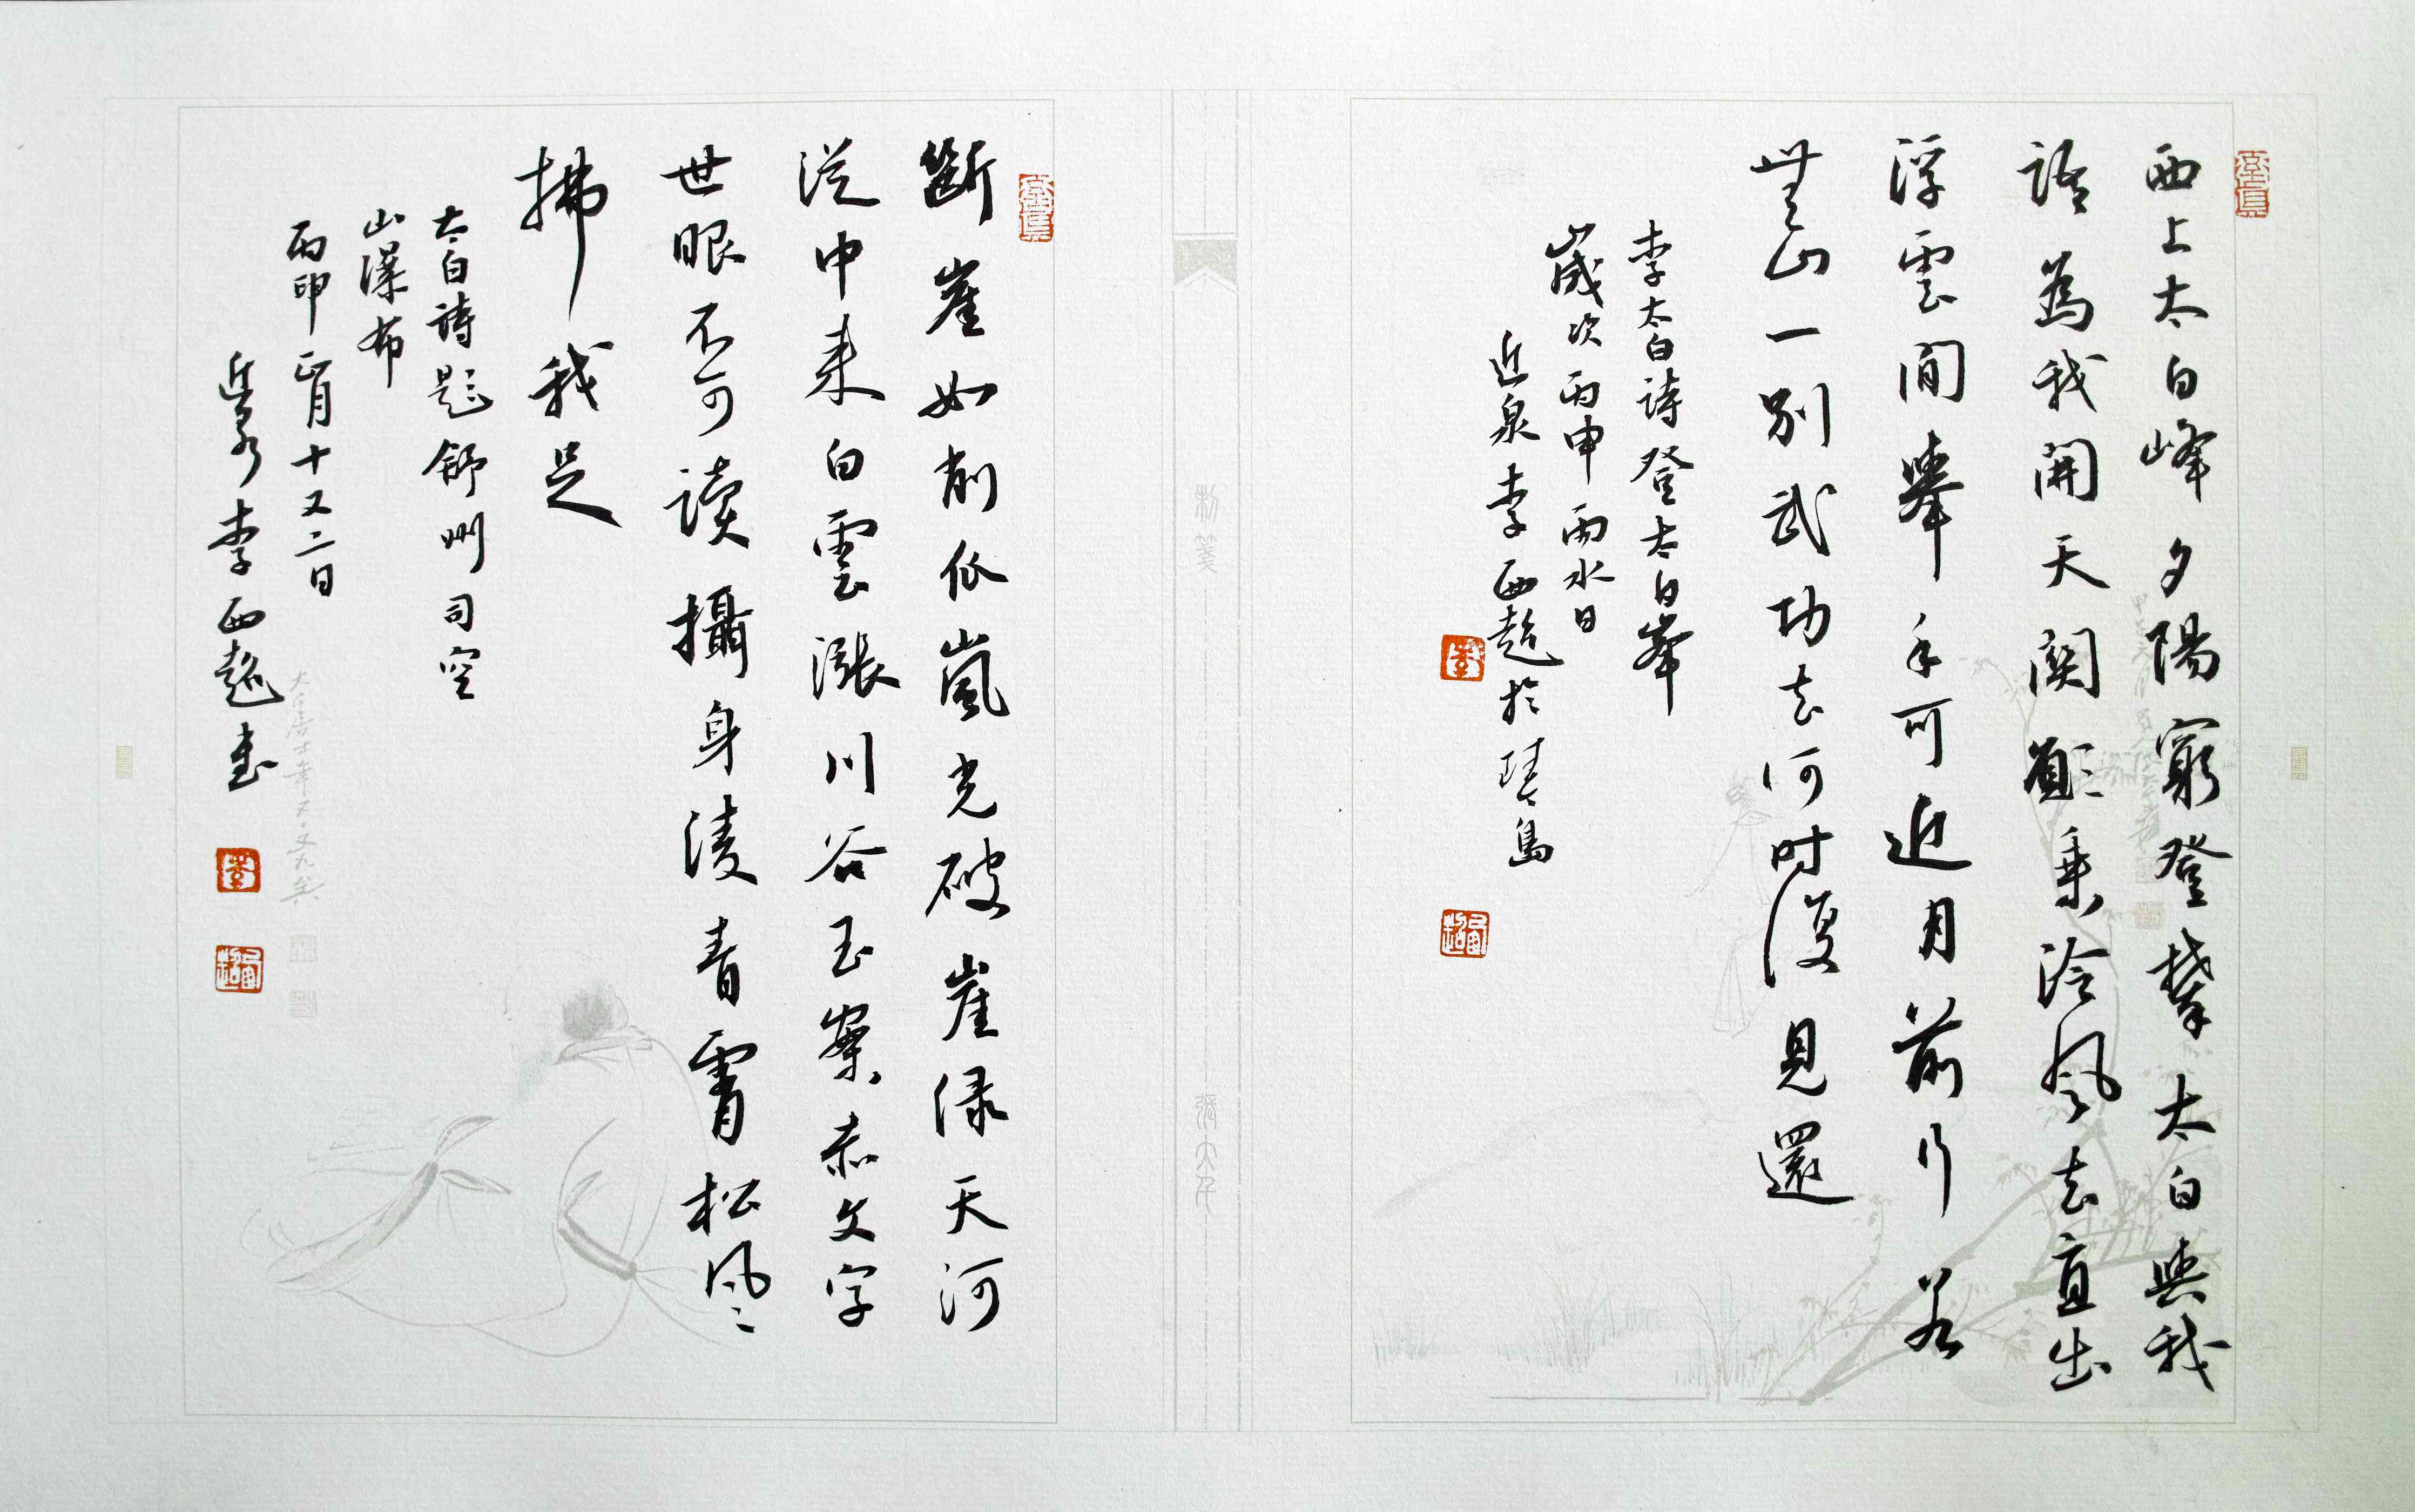 西上太白峰夕陽窮登攀太白與我
語為我開天關願乘泠風去直出
浮雲間舉手可近月前行若
無山一別武功去何時復見還
李太白詩登太白峯
歲次丙申雨水日
近泉李西超於琴島
斷崖如削瓜嵐光破崖绿天河
従中来白雲漲川谷玉案赤文字
世眼不可讀攝身凌青霄松風
拂我足
太白詩題舒州司空
山瀑布
丙申正月十又二日
近泉李西超书